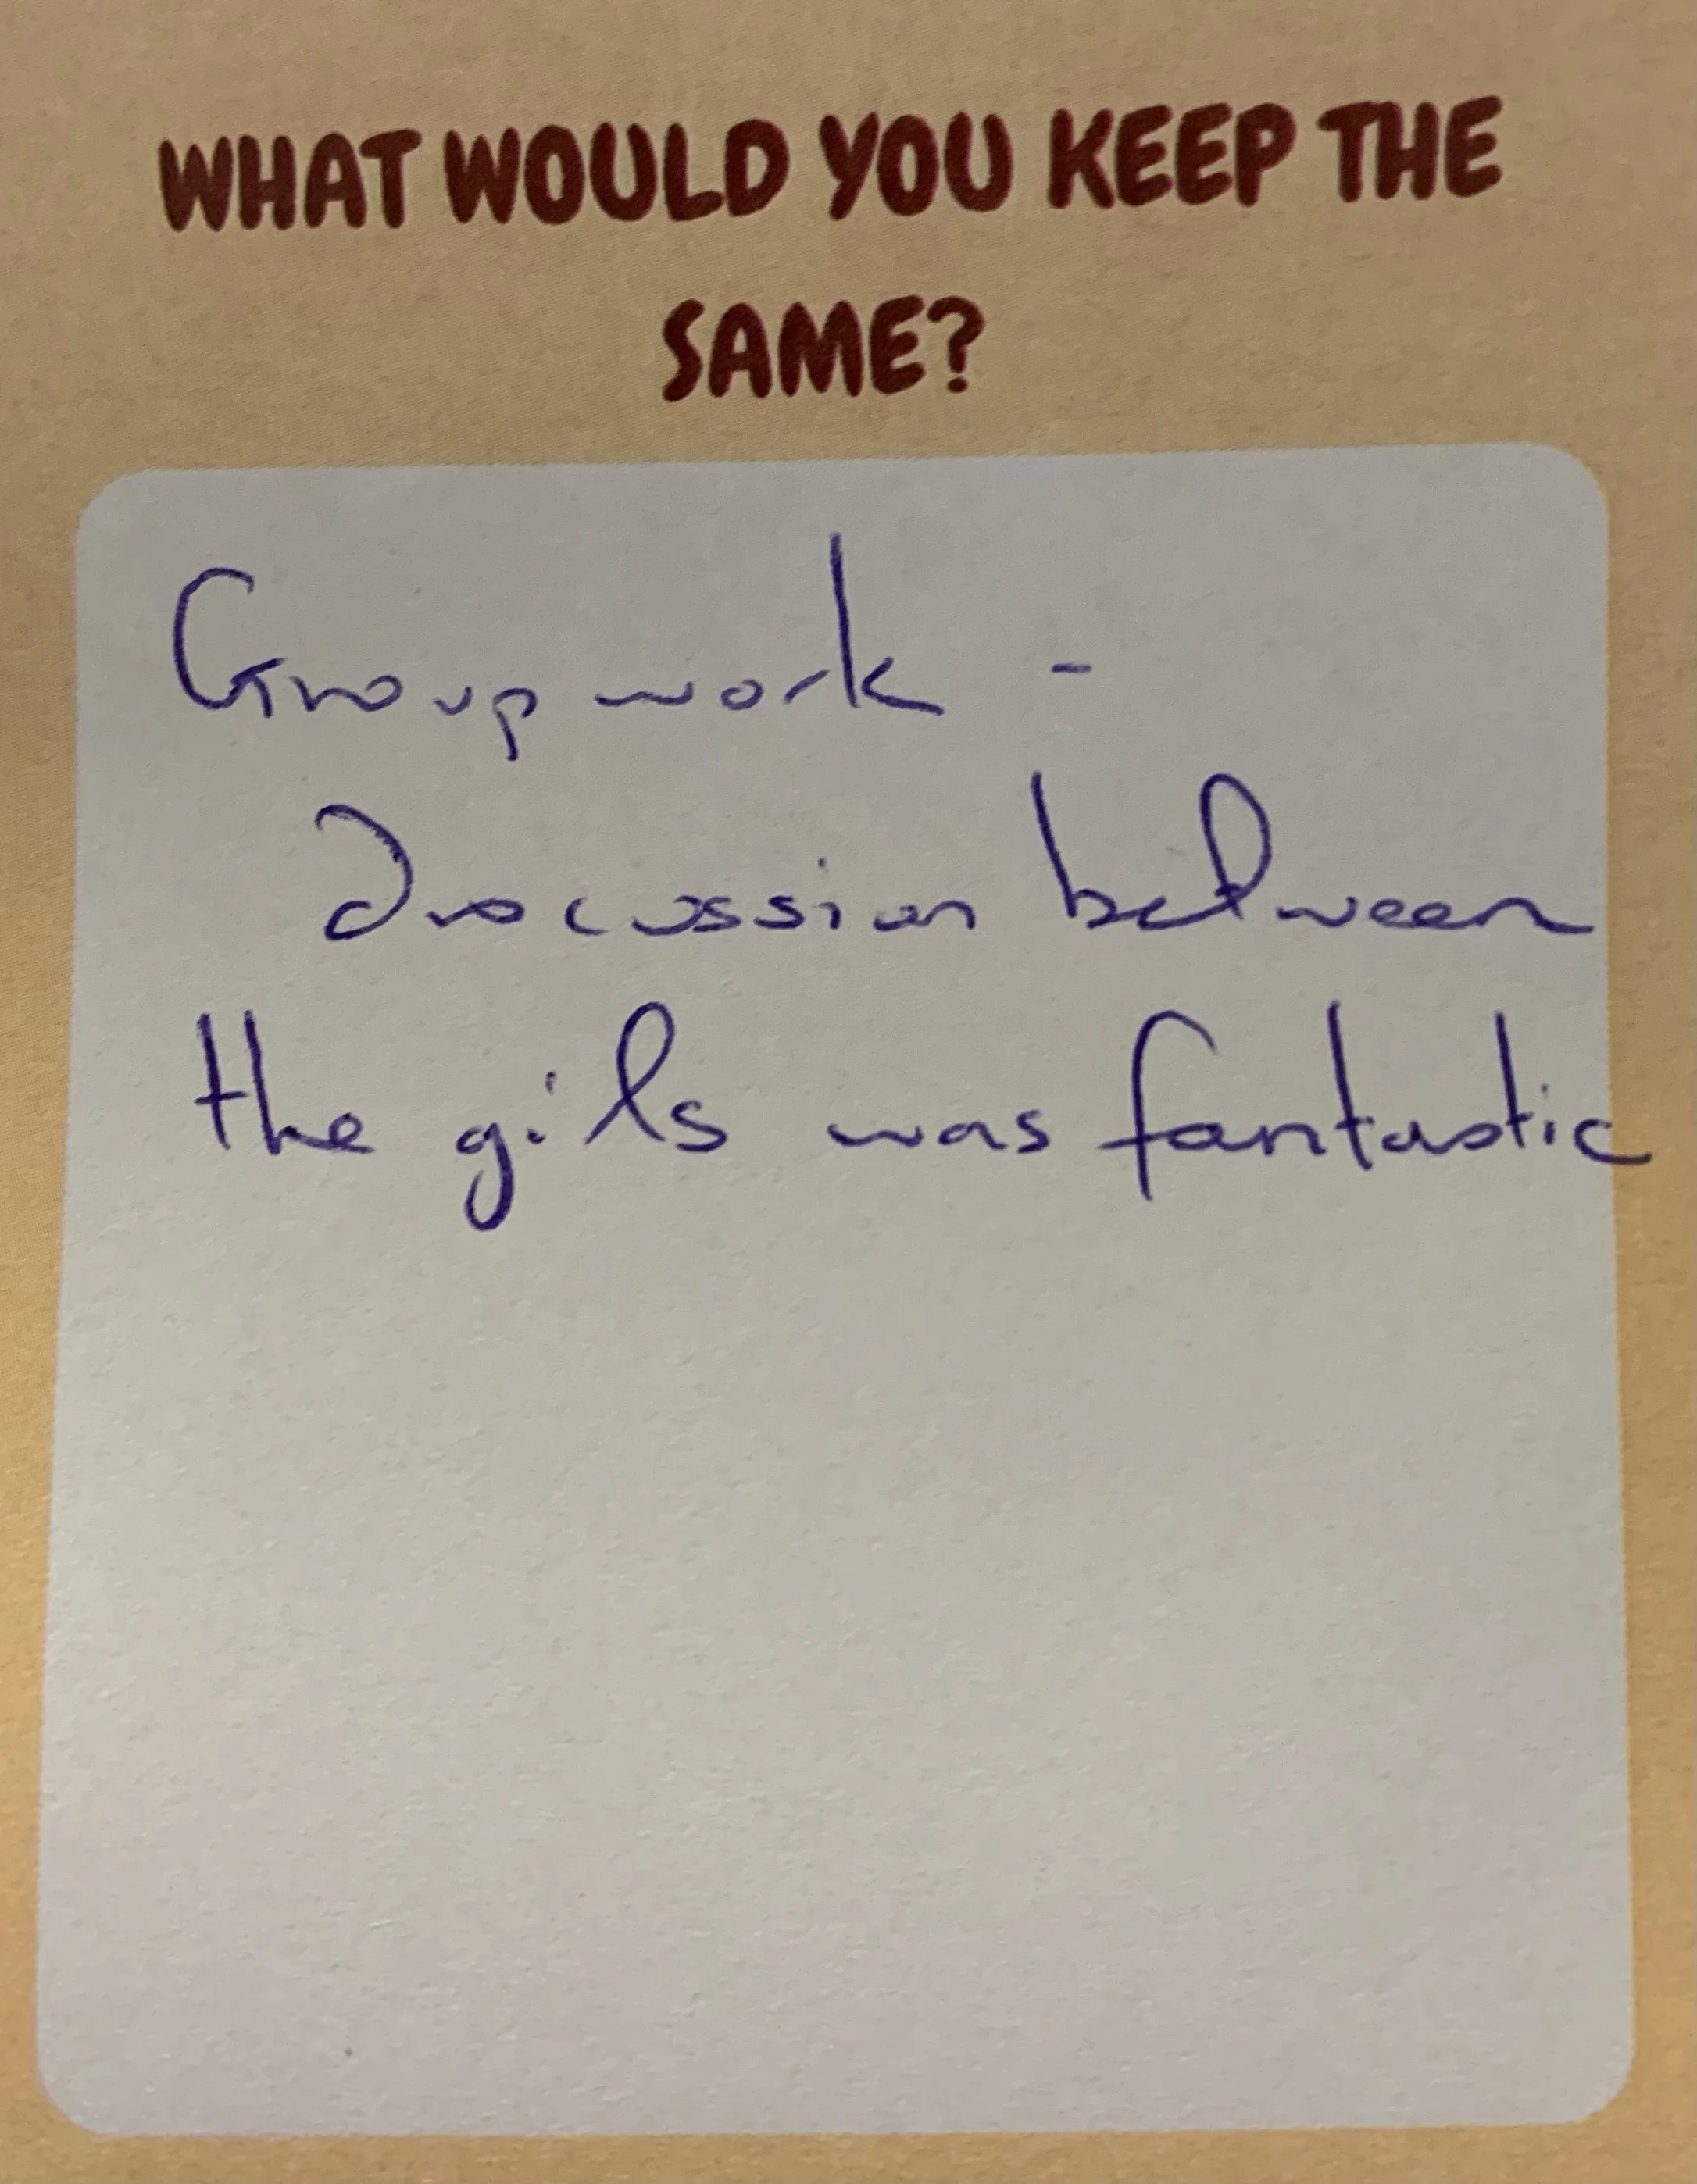 WHAT WOULD YOU KEEP THE
SAME?
Group work -
Discussion between
the girls was fantastic